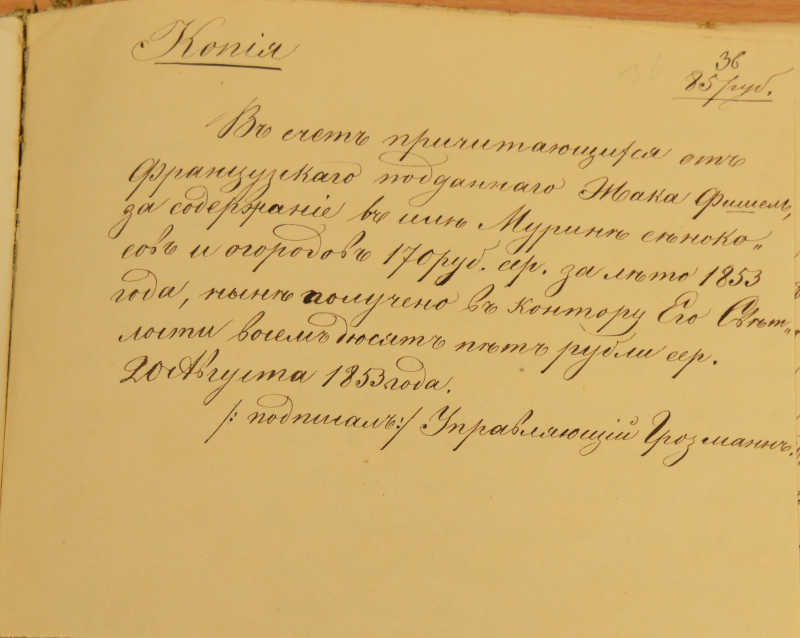 Копія
36
85 руб.
Въ счетъ причитающихся отъ
Французскаго подданнаго Жака Фишель,
за содержаніе въ имѣ Муринѣ сѣноко„
совъ и огородовъ 170 руб. сер. за лѣто 1853
года, нынѣ получено въ контору Его Свѣт„
лости восемъдюсятъ пѣтъ рубли сер.
20 Августа 1853 года.
/: подписалъ:/ Управляющій Грозманнъ.